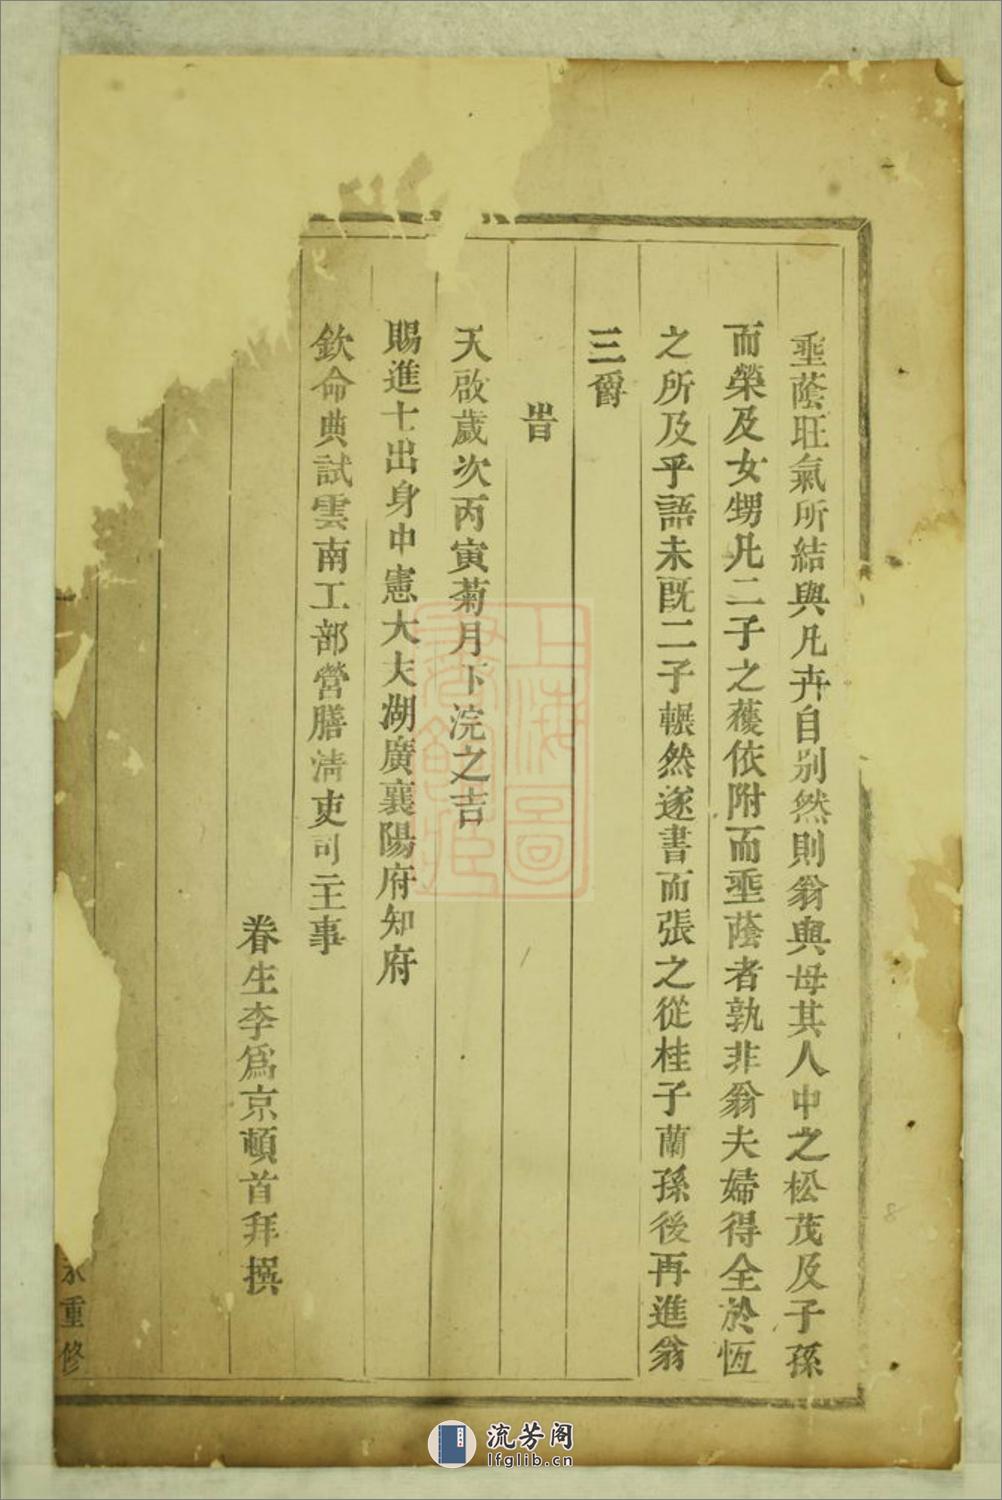 埀蔭旺氣所結與凡卉自别然則翁與母其人中之松茂及子孫
而榮及女甥凡二子之蒦依附而埀蔭者孰非翁夫婦得全於恆
之所及乎語未旣二子囅然遂書而張之從桂子蘭孫後再進翁
三爵
旹
天啟歲次丙寅菊月下浣之吉
賜進士出身中憲大夫湖廣襄陽府知府
欽命典試雲南工部營膳清吏司主事
眷生李爲京頓首拜撰
永重修
上海圖書館藏
流芳阁
lfglib.cn
8